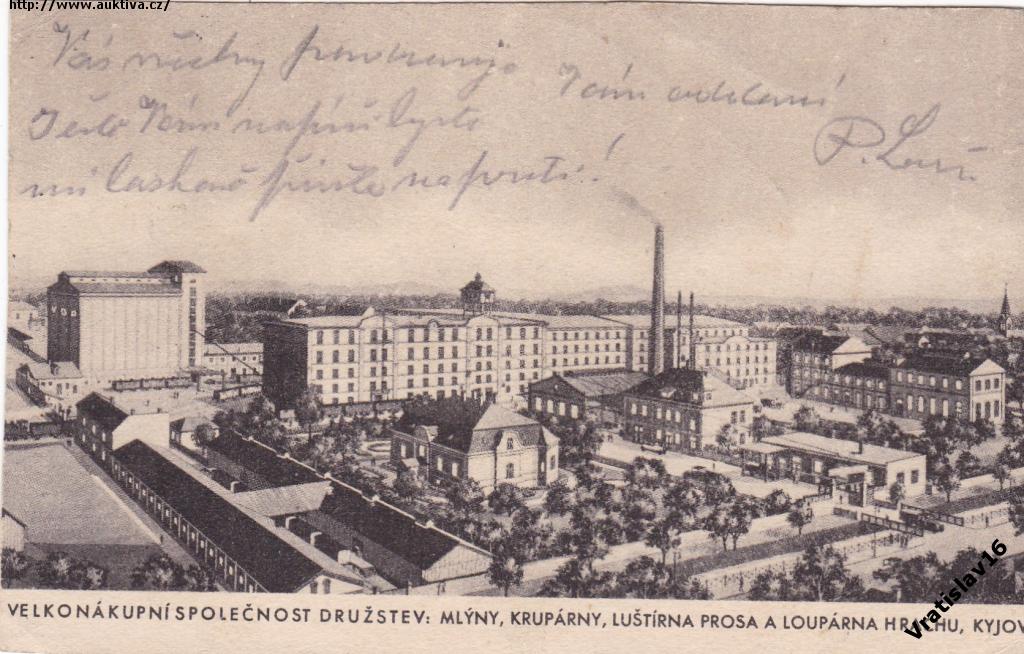 http://www.auktiva.cz/
Vás všechny pozdravuje
Vám oddaný
Ještě Vám napíši
P.
mi laskavě
V D P
VELKONÁKUPNÍ SPOLEČNOST DRUŽSTEV: MLÝNY, KRUPÁRNY, LUŠTÍRNA PROSA A LOUPÁRNA HRACHU, KYJOV
Vratislav16